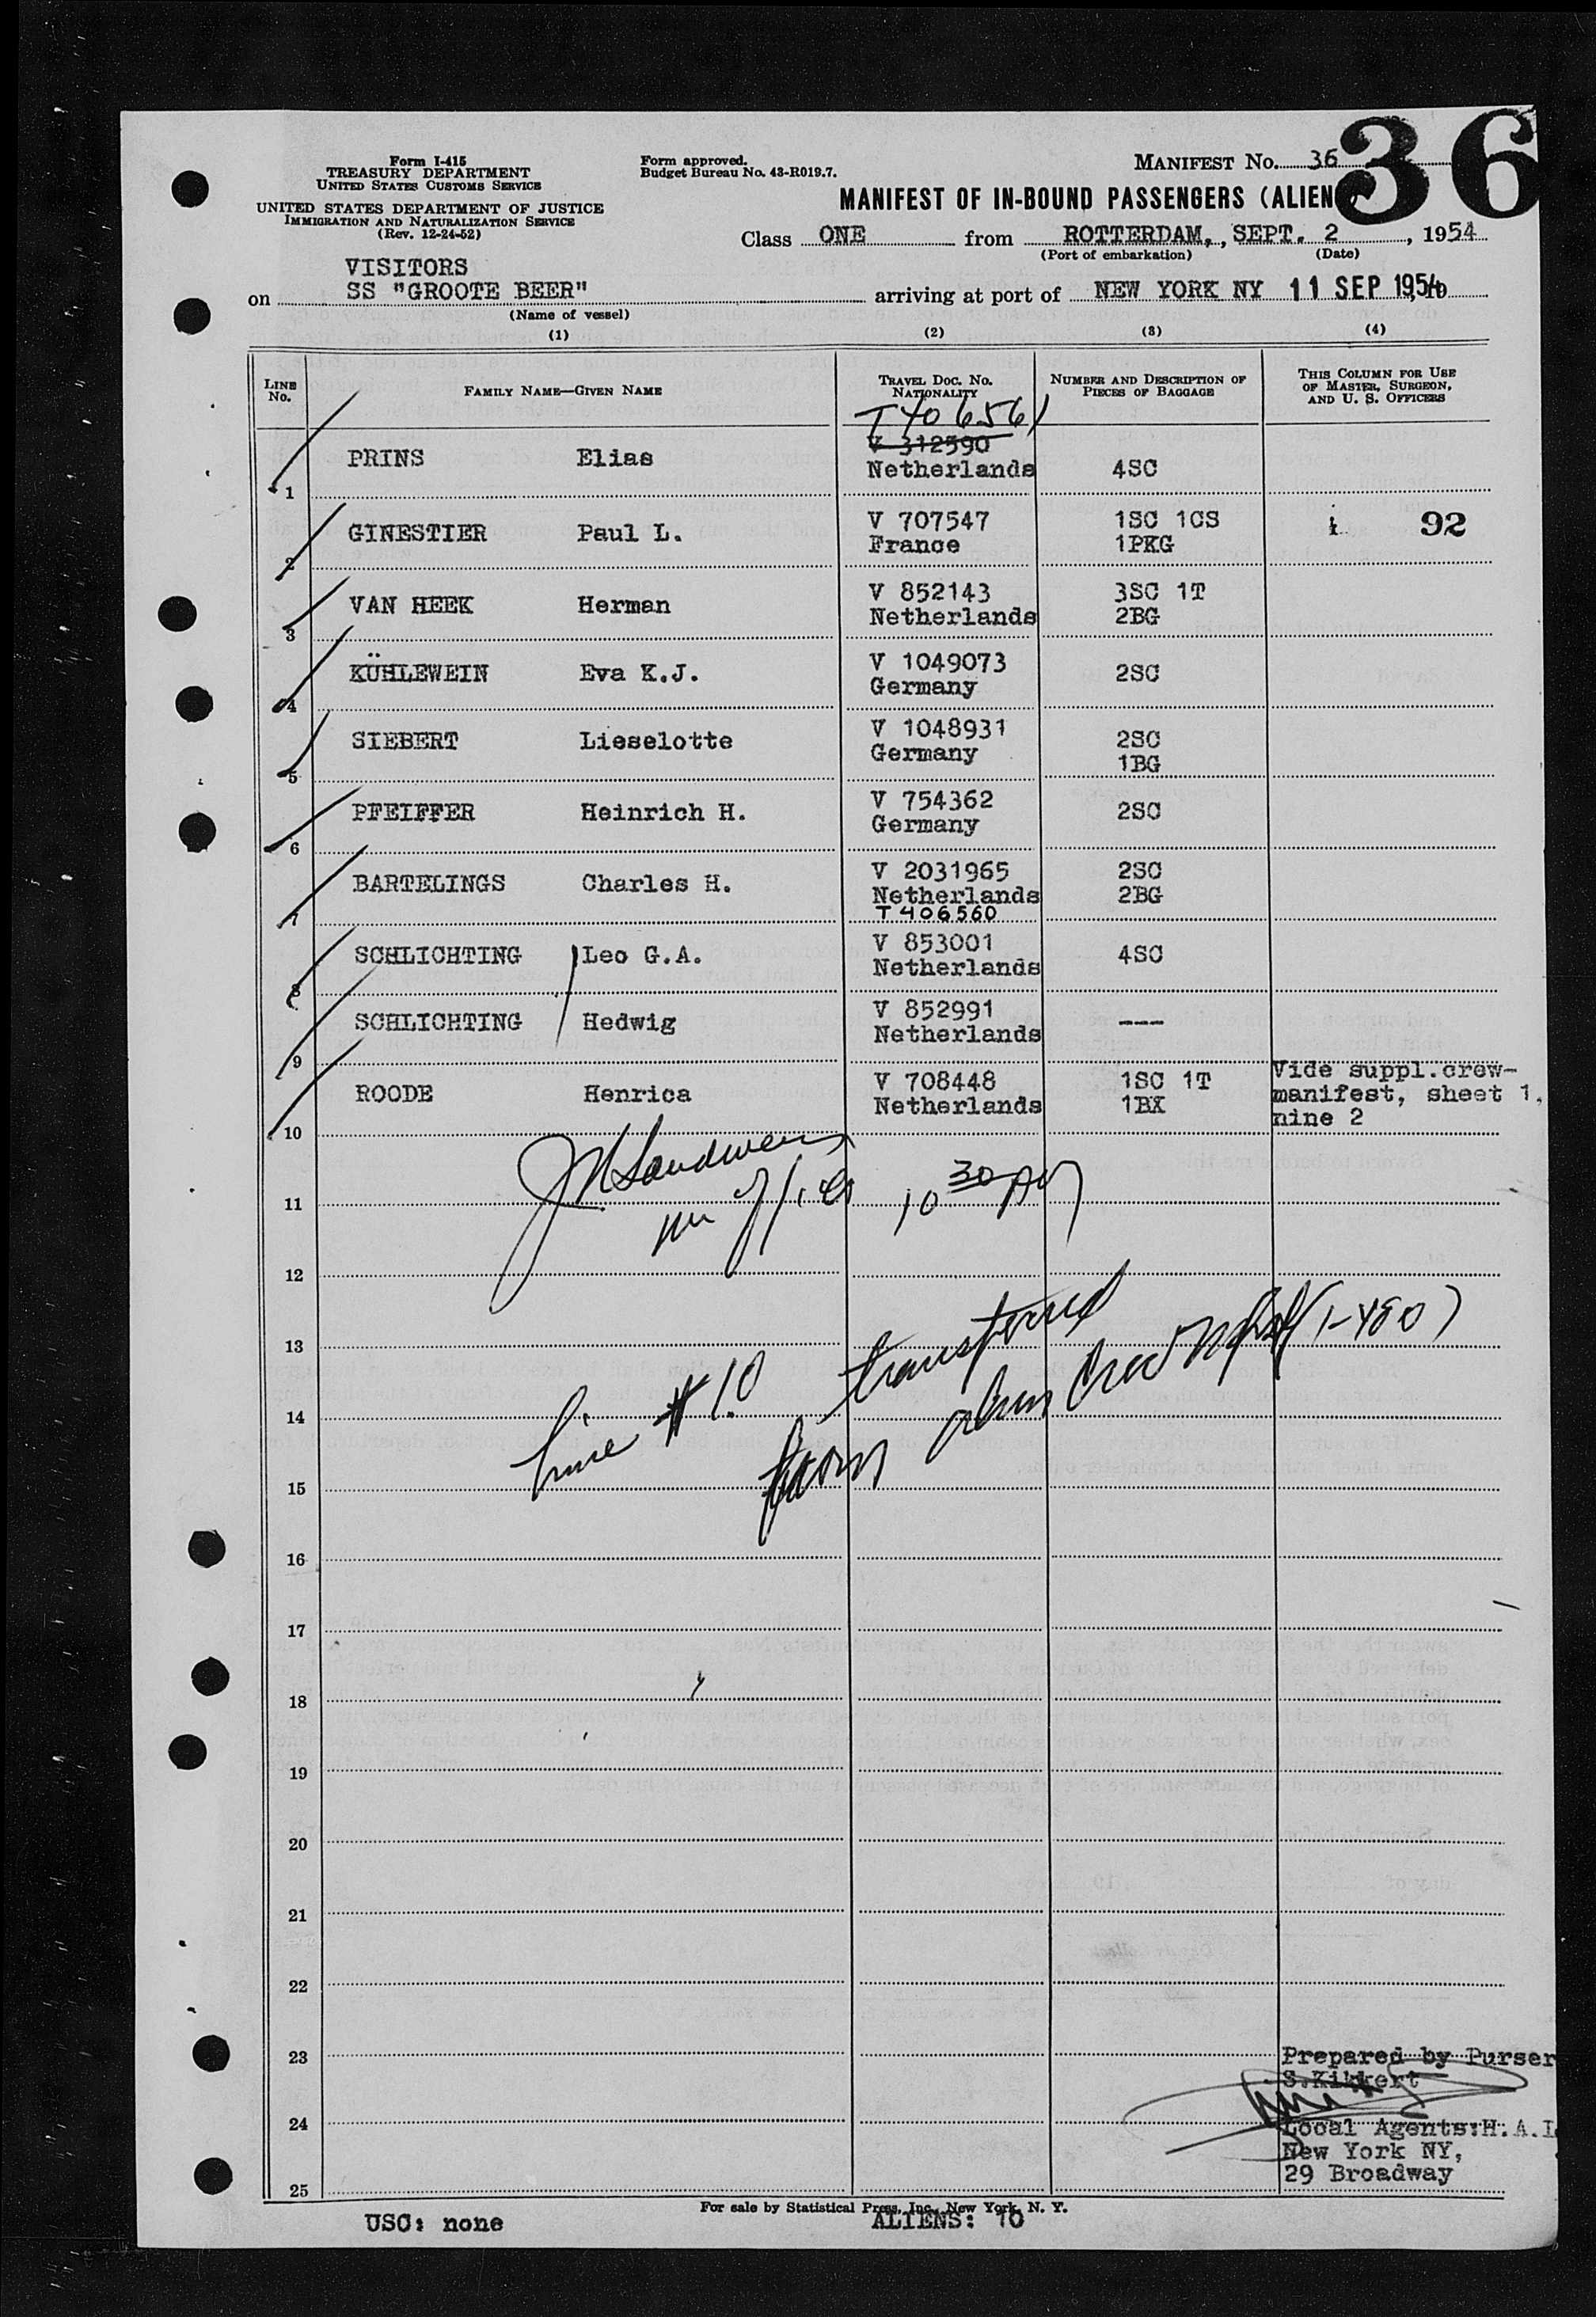 36
Form I-415
TREASURY DEPARTMENT
UNITED STATES CUSTOMS SERVICE
UNITED STATES DEPARTMENT OF JUSTICE
IMMIGRATION AND NATURALIZATION SERVICE
(Rev. 12-24-52)
Form approved.
Budget Bureau No. 43-R019.7.
MANIFEST No. 36
MANIFEST OF IN-BOUND PASSENGERS (ALIEN
Class ONE from ROTTERDAM, , SEPT. 2 , 1954
(Port of embarkation) (Date)
VISITORS
on SS "GROOTE BEER" arriving at port of NEW YORK NY 11 SEP 1954
(Name of vessel)
(1) (2) (3) (4)
LINE No. FAMILY NAME—GIVEN NAME TRAVEL DOC. NO. NATIONALITY NUMBER AND DESCRIPTION OF PIECES OF BAGGAGE THIS COLUMN FOR USE OF MASTER, SURGEON, AND U. S. OFFICERS
T406561
V 312590
1 PRINS Elias Netherlands 4SC
2 GINESTIER Paul L. V 707547 France 1SC 1CS 1PKG 92
3 VAN HEEK Herman V 852143 Netherlands 3SC 1T 2BG
4 KÜHLEWEIN Eva K.J. V 1049073 Germany 2SC
5 SIEBERT Lieselotte V 1048931 Germany 2SC 1BG
6 PFEIFFER Heinrich H. V 754362 Germany 2SC
7 BARTELINGS Charles H. V 2031965 Netherlands 2SC 2BG
T406560
8 SCHLICHTING Leo G.A. V 853001 Netherlands 4SC
9 SCHLICHTING Hedwig V 852991 Netherlands ---
10 ROODE Henrica V 708448 Netherlands 1SC 1T 1BX Vide suppl.crew-manifest, sheet 1, nine 2
11 10 30
12
13
14 Line #10 transferred
15 from alien crew (I-480)
16
17
18
19
20
21
22
23 Prepared by Purser
S.Kikkert
24 Local Agents:H.A.L
New York NY,
25 29 Broadway
For sale by Statistical Press, Inc., New York, N. Y.
USC: none ALIENS: 10